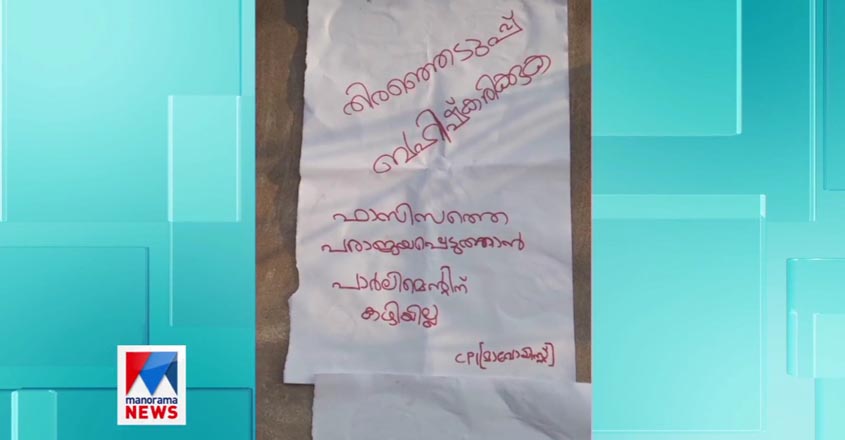 തിരഞ്ഞെടുപ്പ്
ബഹിഷ്ക്കരിക്കുക
ഫാസിസത്തെ
പരാജയപ്പെടുത്താൻ
പാർലിമെന്റിന്
കഴിയില്ല
CPI[മാവോയിസ്റ്റ്]
manorama
NEWS